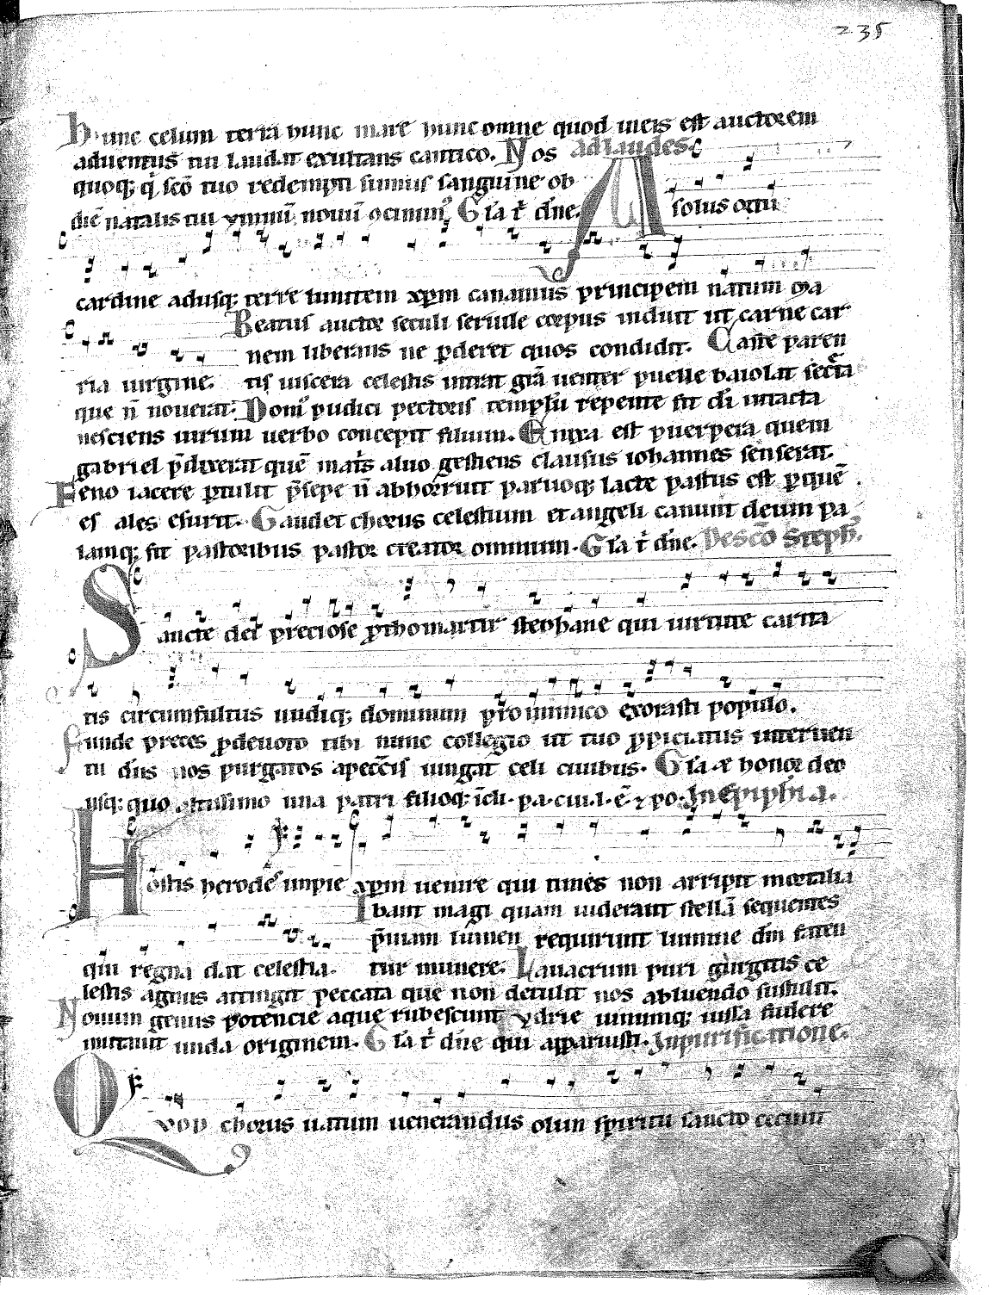 235
Hunc celum terra hunc mare hunc omne quod in eis est auctorem
aduentus tui laudat exultans cantico. Nos ad laudes
quoq; q̇ sc̄o tuo redempti sumus sanguine ob
diē natalis tui ymnū nouū ↄcinim⁹ Gl̄a t̄ dn̄e. A solus ortu
cardine adusq; terre limitem xp̄m canamus principem natum ma
Beatus auctor seculi seruile corpus induit ut carne car
nem liberans ne p̄deret quos condidit. Caste paren
ria uirgine. tis uiscera celestis intrat grā uenter puelle baiolat secreta
que n̄ nouerat. Dom⁹ pudici pectoris templū repente fit di̅ intacta
nesciens uirum uerbo concepit filium. Enixa est puerpera quem
gabriel p̄dixerat quē matis aluo gestiens clausus iohannes senserat.
Feno iacere p̄tulit p̄sepe n̄ abhorruit paruoq; lacte pastus est p̄ quē
es ales esurit. Gaudet chorus celestium et angeli canunt deum pa
lamq; fit pastoribus pastor creator omnium. Gl̄a t̄ dn̄e. De sc̄o Steph̄.
Sancte dei preciose p̄thomartir stephane qui uirtute carita
tis circumfultus undiq; dominum pro inimico exorasti populo.
Funde preces p̄ deuoto tibi nunc collegio ut tuo p̄piciatus interuen
tu dn̄s nos purgatos a pecc̄is iungat celi ciuibus. Gl̄a et honor deo
usq; quo altissimo una patri filioq; īcli. pa. cui. l. ē ⁊ po. In Epiphia.
Hostis herodes impie xp̄m uenire quid times non arripit mortalia
Ibant magi quam uiderant stellā sequentes
p̄uiam lumen requirunt lumine dm̄ faten
qui regna dat celestia. tur munere. Lauacrum puri gurgitis ce
lestis agnus attingit peccata que non detulit nos abluendo sustulit.
Nouum genus potencie aque rubescunt ydrie uinumq; iussa fudere
mutauit unda originem. Gl̄a t̄ dn̄e qui apparuisti. In purificatione.
Quod chorus uatum uenerandus olim spiritu sancto cecinit